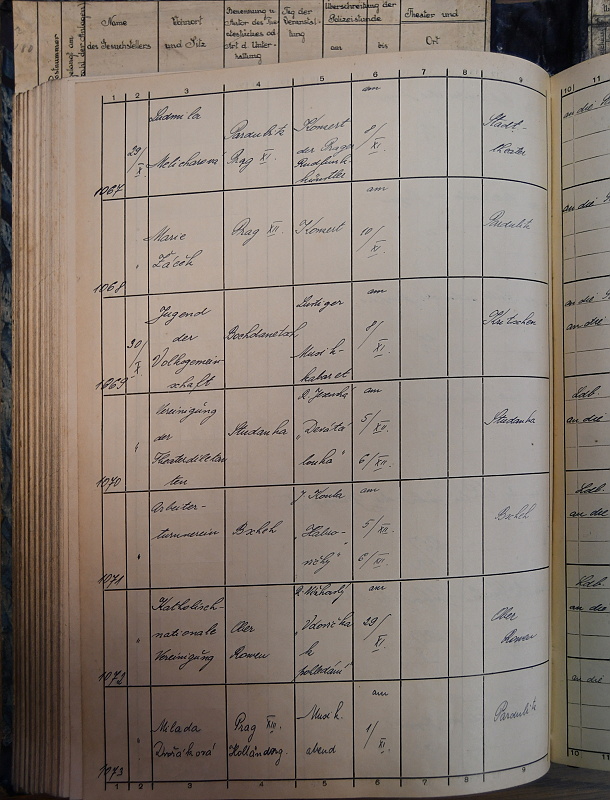 Name
des Gesuchstellers
Wohnort
und Sitz
Benennung u.
Autor des Thea
terstückes od.
Art d. Unter-
haltung
Tag der
Veranstal-
tung
Überschreitung der
Polizeistunde
aus
bis
Theater und
Ort
1 2 3 4 5 6 7 8 9 10 11
Ludmila
Melicharová
29/
X.
1067
Pardubitz
Prag XI.
Konzert
der Prager
Rundfunk-
künstler
am
8/
XI.
Stadt-
theater
an die
1068
"
Marie
Žáček
Prag XII.
Konzert
am
10/
XI.
Pardubitz
an die
1069
30/
X.
Jugend
der
Volksgemein-
schaft
Bochdanetsch
Lustiger
Musik-
kabaret
am
8/
XI.
Kritschen
an die
an die
1070
"
Vereinigung
der
Theaterdiletan
ten
Studanka
"Devátá
louka"
am
5/XII.
6/XII.
Studanka
Ldb.
an die
1071
"
Arbeiter-
turnverein
am
5/XII.
6/XII.
Ldb.
an die
1072
"
Katholisch-
nationale
Vereinigung
Ober
Rowen
"Vdovička
k
pohledání"
am
29/
XI.
Ober
Rowen
Ldb.
an die
1073
"
Milada
Dvořáková
Prag XIII.
Musik-
abend
am
1/
XI.
Pardubitz
an die
1 2 3 4 5 6 7 8 9 10 11